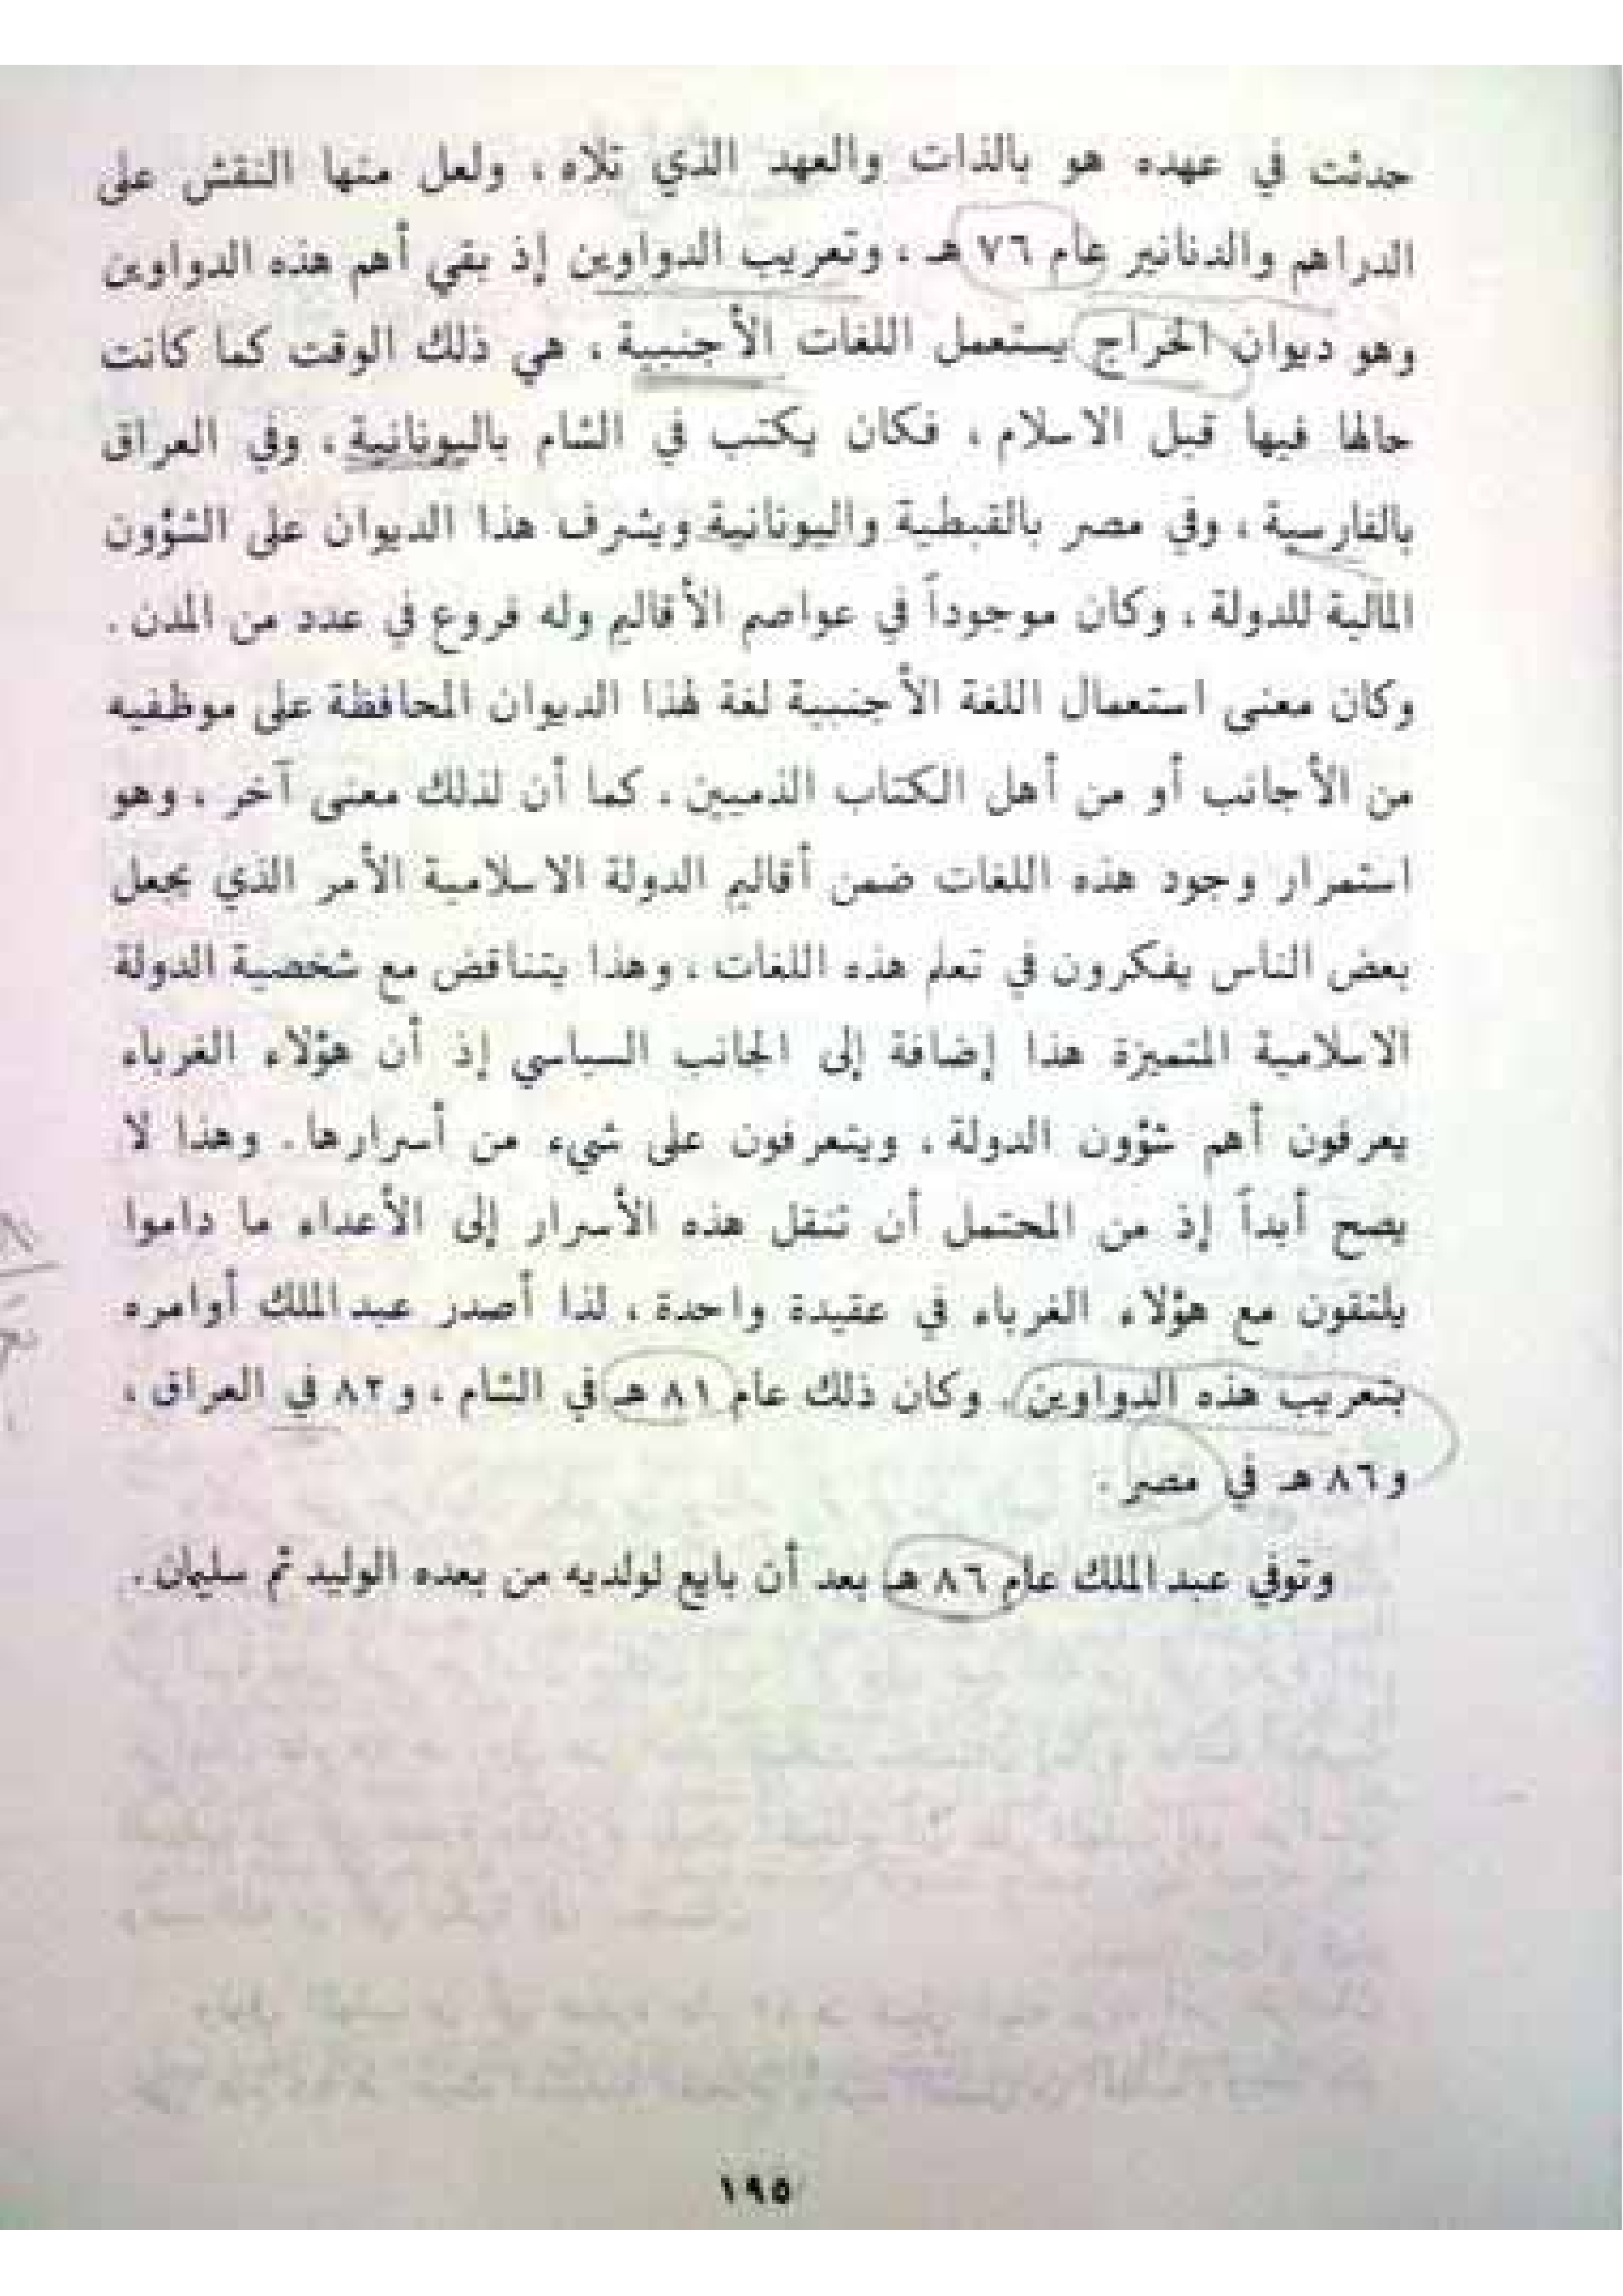 حدثت في عهده هو بالذات والعهد الذي تلاه ، ولعل منها النقش على
الدراهم والدنانير عام ٧٦ هـ ، وتعريب الدواوين إذ بقي أهم هذه الدواوين
وهو ديوان الخراج يستعمل اللغات الأجنبية ، هي ذلك الوقت كما كانت
حالها فيها قبل الاسلام ، فكان يكتب في الشام باليونانية ، وفي العراق
بالفارسية ، وفي مصر بالقبطية واليونانية ويشرف هذا الديوان على الشؤون
المالية للدولة ، وكان موجوداً في عواصم الأقاليم وله فروع في عدد من المدن .
وكان معنى استعمال اللغة الأجنبية لغة لهذا الديوان المحافظة على موظفيه
من الأجانب أو من أهل الكتاب الذميين ، كما أن لذلك معنى آخر ، وهو
استمرار وجود هذه اللغات ضمن أقاليم الدولة الاسلامية الأمر الذي يجعل
بعض الناس يفكرون في تعلم هذه اللغات ، وهذا يتناقض مع شخصية الدولة
الاسلامية المتميزة هذا إضافة إلى الجانب السياسي إذ أن هؤلاء الغرباء
يعرفون أهم شؤون الدولة ، ويتعرفون على شيء من أسرارها . وهذا لا
يصح أبداً إذ من المحتمل أن تنقل هذه الأسرار إلى الأعداء ما داموا
يلتقون مع هؤلاء الغرباء في عقيدة واحدة ، لذا أصدر عبد الملك أوامره
بتعريب هذه الدواوين . وكان ذلك عام ٨١ هـ في الشام ، و٨٢ في العراق ،
و٨٦ هـ في مصر .
وتوفي عبد الملك عام ٨٦ هـ بعد أن بايع لولديه من بعده الوليد ثم سليمان .
١٩٥